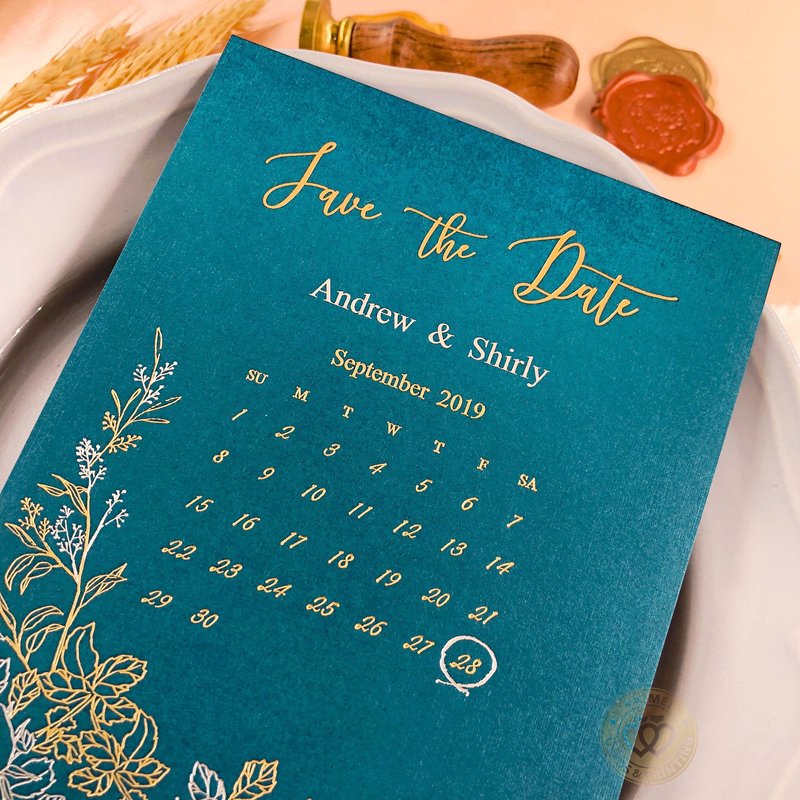 Save the Date
Andrew & Shirly
September 2019
SU M T W T F SA
1 2 3 4 5 6 7
8 9 10 11 12 13 14
15 16 17 18 19 20 21
22 23 24 25 26 27 28
29 30